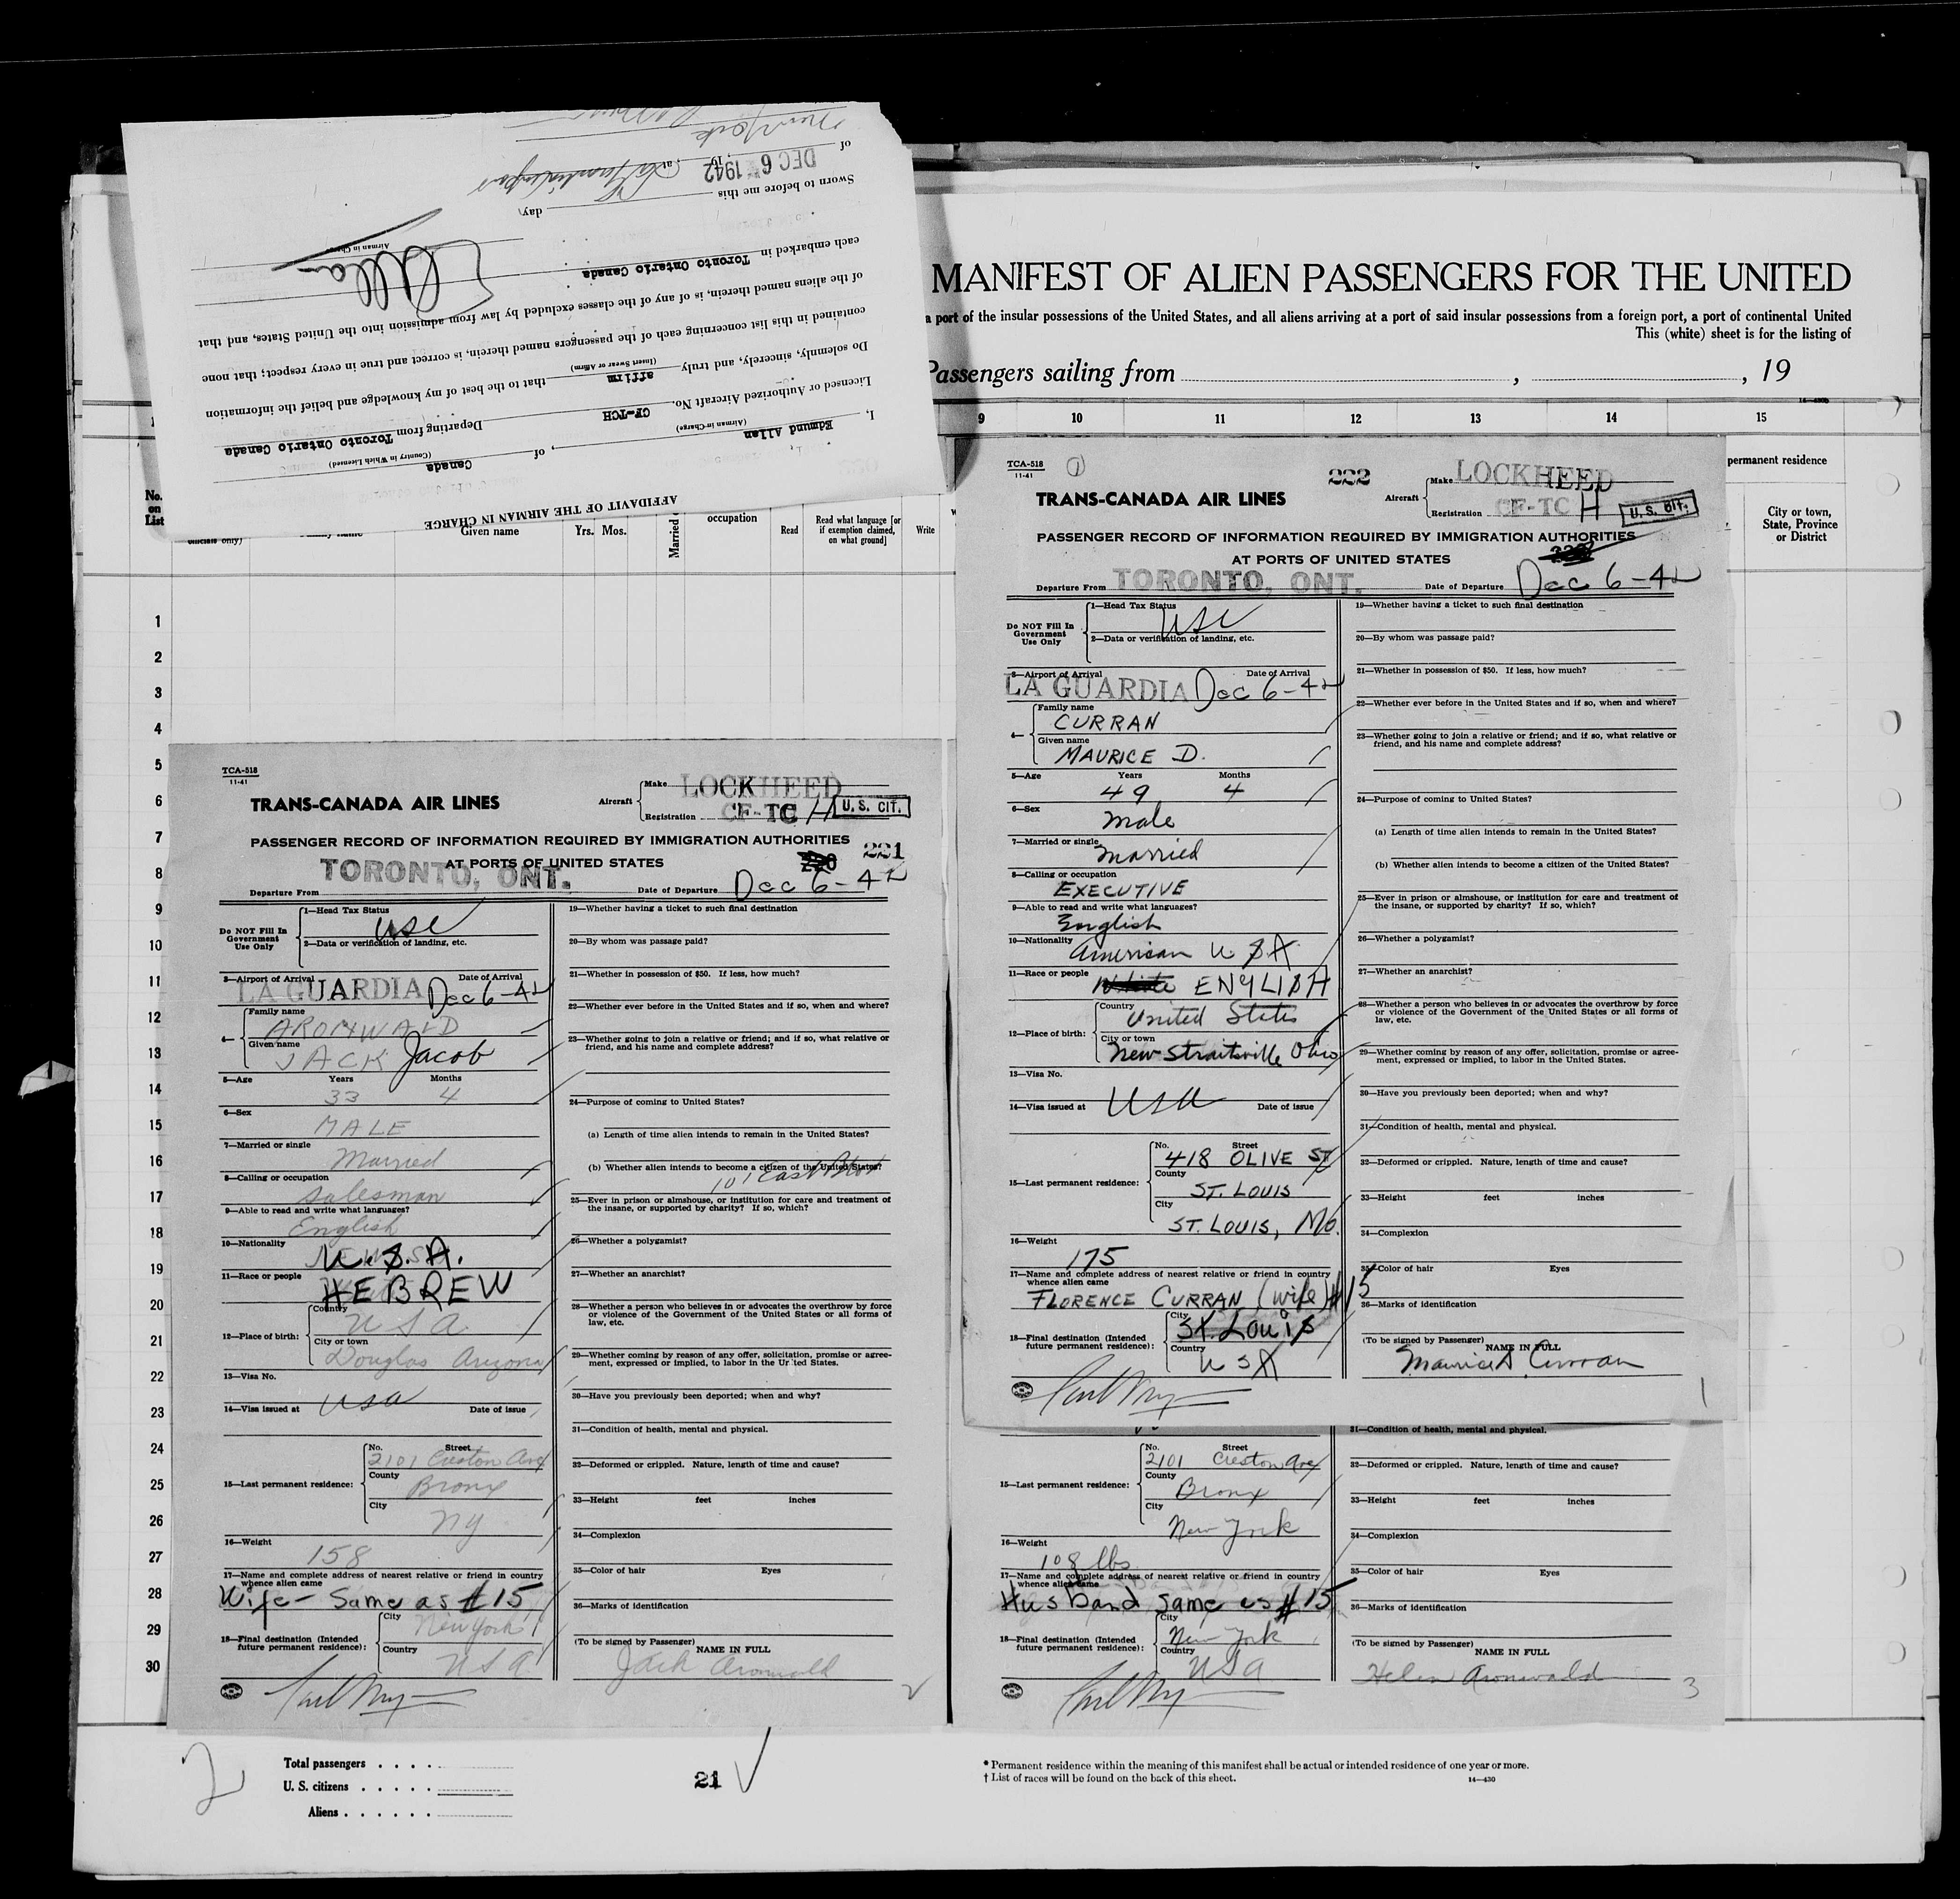 MANIFEST OF ALIEN PASSENGERS FOR THE UNITED
a port of the insular possessions of the United States, and all aliens arriving at a port of said insular possessions from a foreign port, a port of continental United
This (white) sheet is for the listing of
Passengers sailing from , , 19
9 10 11 12 13 14 15
permanent residence
City or town, State, Province or District
No. on List
Given name
Yrs. Mos.
Married
occupation
Read
Read what language [or if exemption claimed, on what ground]
Write
AFFIDAVIT OF THE AIRMAN IN CHARGE
I, Edmund Allan, of Canada
(Airman in Charge) (Country in Which Licensed)
Licensed or Authorized Aircraft No. CF-TCH Departing from Toronto Ontario Canada
Do solemnly, sincerely, and truly affirm that to the best of my knowledge and belief the information
(Insert Swear or Affirm)
contained in this list concerning each of the passengers named therein, is correct and true in every respect; that none
of the aliens named therein, is of any of the classes excluded by law from admission into the United States, and that
each embarked in Toronto Ontario Canada
E Allan
Airman in Charge
Sworn to before me this day
of DEC 6 1942 19 , at
New York
1
2
3
4
5
6
7
8
9
10
11
12
13
14
15
16
17
18
19
20
21
22
23
24
25
26
27
28
29
30
TCA-518
11-41
TRANS-CANADA AIR LINES
Aircraft
Make LOCKHEED
Registration CF-TC H
U. S. CIT.
PASSENGER RECORD OF INFORMATION REQUIRED BY IMMIGRATION AUTHORITIES
AT PORTS OF UNITED STATES
220 221
Departure From TORONTO, ONT. Date of Departure Dec 6-42
Do NOT Fill In Government Use Only
1—Head Tax Status
USC
2—Data or verification of landing, etc.
3—Airport of Arrival Date of Arrival
LA GUARDIA Dec 6-42
4—
Family name
ARONWALD
Given name
JACK Jacob
5—Age Years Months
33 4
6—Sex
MALE
7—Married or single
Married
8—Calling or occupation
Salesman
9—Able to read and write what languages?
English
10—Nationality
U.S.A.
11—Race or people
HEBREW
12—Place of birth:
Country
USA
City or town
Douglas Arizona
13—Visa No.
14—Visa issued at USA Date of issue
15—Last permanent residence:
No. Street
2101 Creston Ave
County
Bronx
City
NY
16—Weight
158
17—Name and complete address of nearest relative or friend in country whence alien came
Wife - Same as #15
18—Final destination (Intended future permanent residence):
City
New York
Country
USA
19—Whether having a ticket to such final destination
20—By whom was passage paid?
21—Whether in possession of $50. If less, how much?
22—Whether ever before in the United States and if so, when and where?
23—Whether going to join a relative or friend; and if so, what relative or friend, and his name and complete address?
24—Purpose of coming to United States?
(a) Length of time alien intends to remain in the United States?
(b) Whether alien intends to become a citizen of the United States?
101 East
25—Ever in prison or almshouse, or institution for care and treatment of the insane, or supported by charity? If so, which?
26—Whether a polygamist?
27—Whether an anarchist?
28—Whether a person who believes in or advocates the overthrow by force or violence of the Government of the United States or all forms of law, etc.
29—Whether coming by reason of any offer, solicitation, promise or agreement, expressed or implied, to labor in the United States.
30—Have you previously been deported; when and why?
31—Condition of health, mental and physical.
32—Deformed or crippled. Nature, length of time and cause?
33—Height feet inches
34—Complexion
35—Color of hair Eyes
36—Marks of identification
(To be signed by Passenger) NAME IN FULL
Jack Aronwald
2
TCA-518
11-41
1
TRANS-CANADA AIR LINES
222
Aircraft
Make LOCKHEED
Registration CF-TC H
U. S. CIT.
PASSENGER RECORD OF INFORMATION REQUIRED BY IMMIGRATION AUTHORITIES
AT PORTS OF UNITED STATES
Departure From TORONTO, ONT. Date of Departure Dec 6-42
Do NOT Fill In Government Use Only
1—Head Tax Status
USC
2—Data or verification of landing, etc.
3—Airport of Arrival Date of Arrival
LA GUARDIA Dec 6-42
4—
Family name
CURRAN
Given name
MAURICE D.
5—Age Years Months
49 4
6—Sex
Male
7—Married or single
Married
8—Calling or occupation
EXECUTIVE
9—Able to read and write what languages?
English
10—Nationality
American USA
11—Race or people
White ENGLISH
12—Place of birth:
Country
United States
City or town
New Straitsville Ohio
13—Visa No.
14—Visa issued at USA Date of issue
15—Last permanent residence:
No. Street
418 OLIVE ST
County
ST. LOUIS
City
ST. LOUIS, Mo.
16—Weight
175
17—Name and complete address of nearest relative or friend in country whence alien came
FLORENCE CURRAN (wife) #15
18—Final destination (Intended future permanent residence):
City
St. Louis
Country
USA
19—Whether having a ticket to such final destination
20—By whom was passage paid?
21—Whether in possession of $50. If less, how much?
22—Whether ever before in the United States and if so, when and where?
23—Whether going to join a relative or friend; and if so, what relative or friend, and his name and complete address?
24—Purpose of coming to United States?
(a) Length of time alien intends to remain in the United States?
(b) Whether alien intends to become a citizen of the United States?
25—Ever in prison or almshouse, or institution for care and treatment of the insane, or supported by charity? If so, which?
26—Whether a polygamist?
27—Whether an anarchist?
28—Whether a person who believes in or advocates the overthrow by force or violence of the Government of the United States or all forms of law, etc.
29—Whether coming by reason of any offer, solicitation, promise or agreement, expressed or implied, to labor in the United States.
30—Have you previously been deported; when and why?
31—Condition of health, mental and physical.
32—Deformed or crippled. Nature, length of time and cause?
33—Height feet inches
34—Complexion
35—Color of hair Eyes
36—Marks of identification
(To be signed by Passenger) NAME IN FULL
Maurice D Curran
1
15—Last permanent residence:
No. Street
2101 Creston Ave
County
Bronx
City
New York
16—Weight
108 lbs
17—Name and complete address of nearest relative or friend in country whence alien came
Husband same as #15
18—Final destination (Intended future permanent residence):
City
New York
Country
USA
31—Condition of health, mental and physical.
32—Deformed or crippled. Nature, length of time and cause?
33—Height feet inches
34—Complexion
35—Color of hair Eyes
36—Marks of identification
(To be signed by Passenger) NAME IN FULL
Helen Aronwald
3
2
Total passengers
U. S. citizens
Aliens
21
* Permanent residence within the meaning of this manifest shall be actual or intended residence of one year or more.
† List of races will be found on the back of this sheet. 14—430